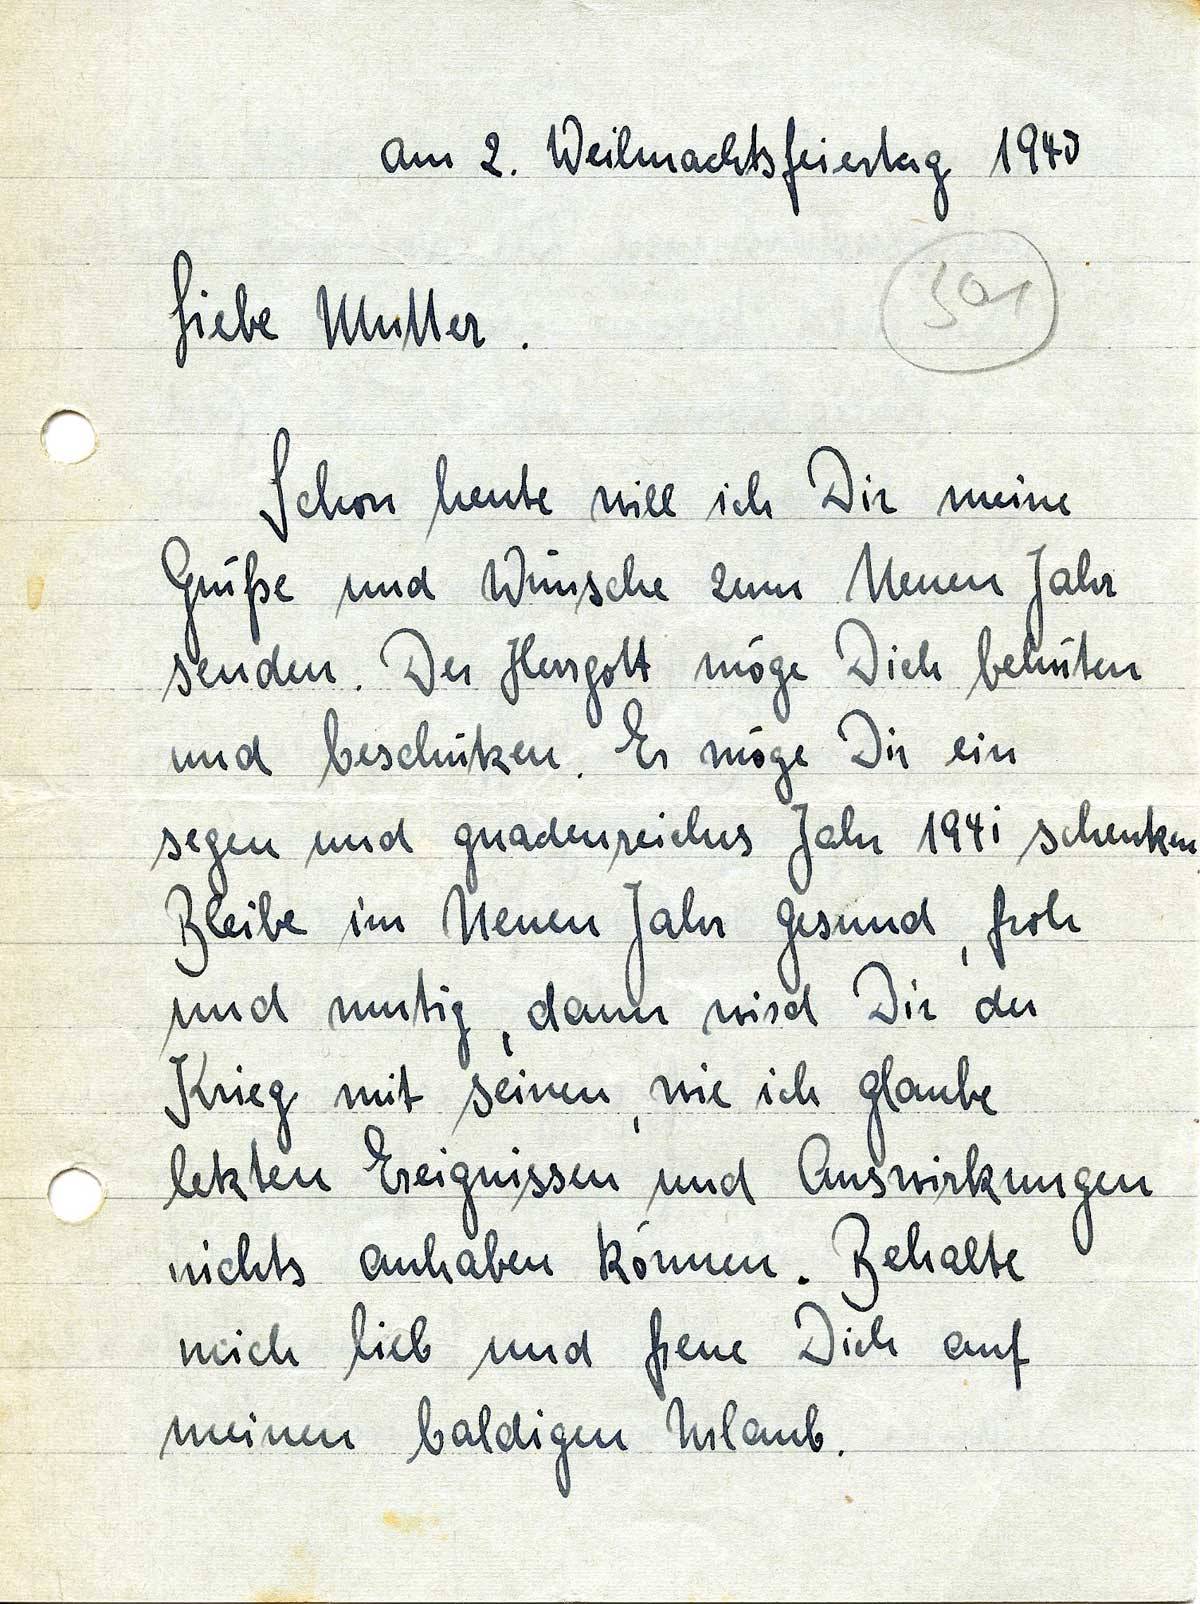 am 2. Weihnachtsfeiertag 1940
301
Liebe Mutter.
Schon heute will ich Dir meine
Grüße und Wünsche zum Neuen Jahr
senden. Der Herrgott möge Dich behüten
und beschützen. Er möge Dir ein
segen und gnadenreiches Jahr 1941 schenken
Bleibe im Neuen Jahr gesund, froh
und mutig, dann wird Dir der
Krieg mit seinen, wie ich glaube
letzten Ereignissen und Auswirkungen
nichts anhaben können. Behalte
mich lieb und freue Dich auf
meinen baldigen Urlaub.